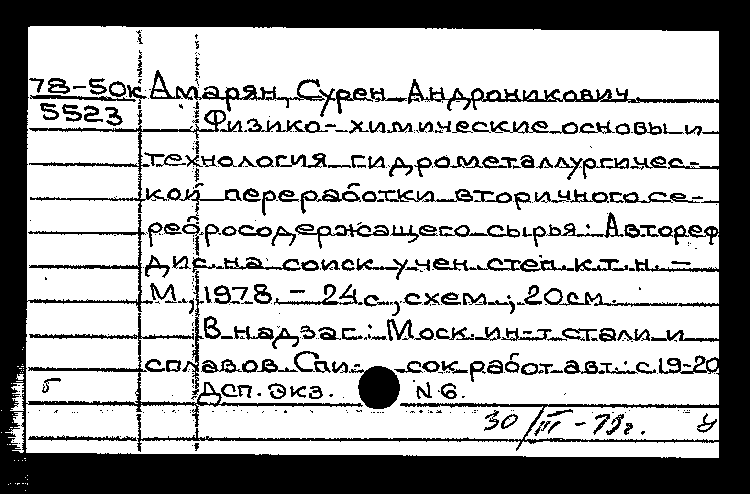 78-50к Амарян, Сурен Андроникович
5523 Физико-химические основы и
технология гидрометаллургичес-
кой переработки вторичного се-
ребросодержащего сырья: Автореф
дис. на соиск. учен. степ. к.т.н. –
М., 1978. – 24 с., схем.; 20 см.
В надзаг.: Моск. ин-т стали и
сплавов. Спи- сок работ авт.: с. 19-20
б Дсп. Экз. N 6.
30/III - 79г. У